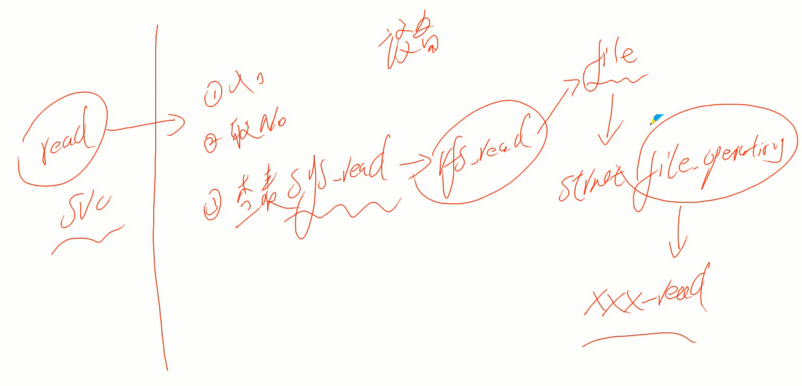 设备
read
SVC
①
② 取No
③ 查表 sys_read → vfs_read
file
struct file_operations
xxx_read